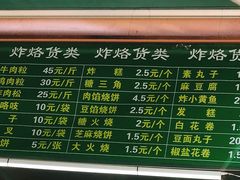 炸烙货类 炸烙货类 炸烙货类
牛肉粒 45元/斤 炸糕 2.5元/个 素丸子
鸡肉粒 30元/斤 糖三角 2.5元/个 麻豆腐
牛肉松 25元/斤 肉馅烧饼 2.5元/个 炸小黄鱼
咯吱 10元/袋 豆馅烧饼 2元/个 发糕
子 10元/袋 糖火烧 2元/个 白花卷 1.5元
叉 10元/袋 芝麻烧饼 1.5元/个 豆面丸子 2
饼 5元/张 大火烧 1.5元/个 椒盐花卷 1.5